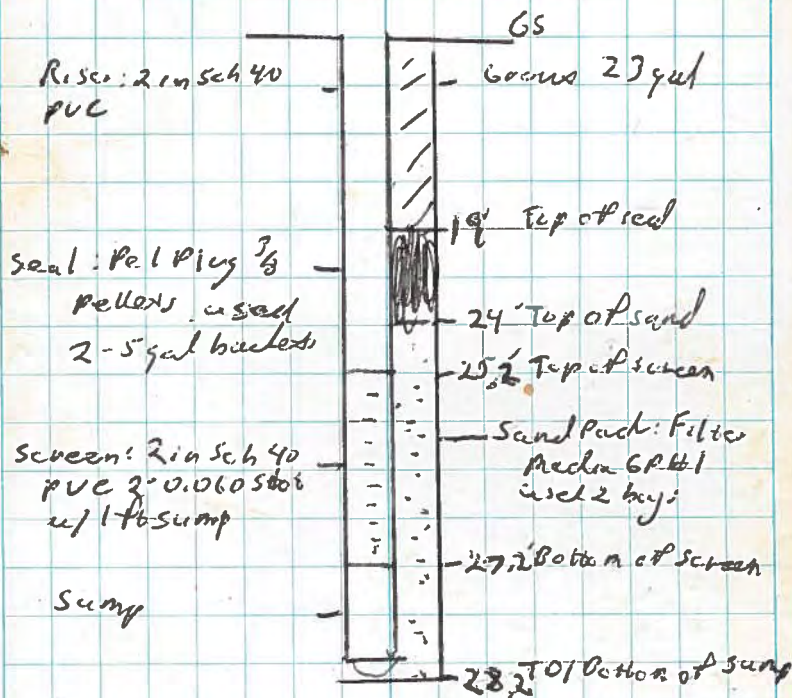 GS
Riser: 2 in Sch 40
PVC
23 gal
19' Top of seal
Seal: Pel Plug 3/8
pellets used
2-5 gal buckets
24' Top of sand
25.2' Top of screen
Sand Pack: Filter
Media GP#1
used 2 bags
Screen: 2 in Sch 40
PVC 2' 0.060 Slot
w/ 1 ft sump
27.2' Bottom of screen
Sump
28.2 TD/Bottom of sump